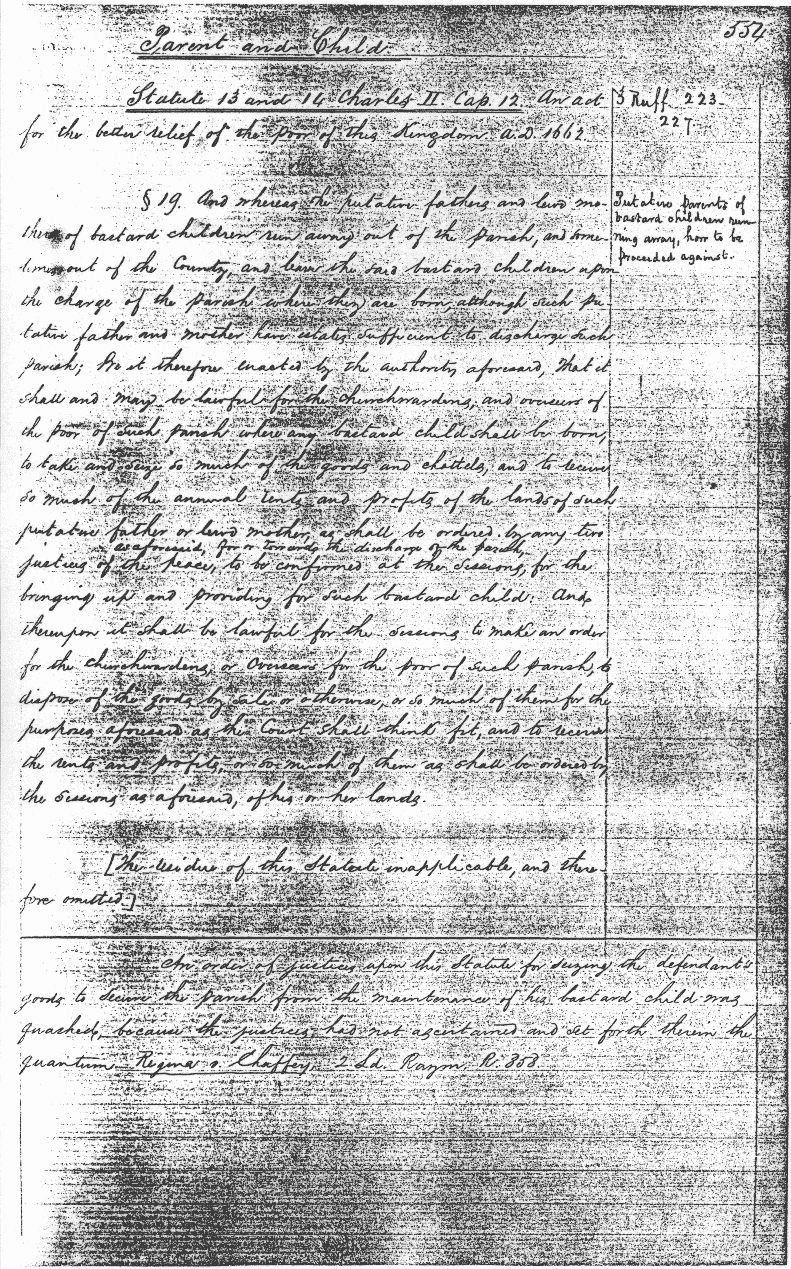 554
Parent and Child.
Statute 13 and 14 Charles II. Cap. 12. An act
for the better relief of the poor of this Kingdom. A.D. 1662
3 Ruff. 223-
227
§ 19. And whereas the putative fathers and lewd mo-
thers of bastard children run away out of the parish, and some-
times out of the County, and leave the said bastard children upon
the charge of the parish where they are born, although such pu-
tative father and mother have estates sufficient to discharge such
parish; Be it therefore enacted by the authority aforesaid, That it
shall and may be lawful for the churchwardens, and overseers of
the poor of such parish where any bastard child shall be born,
to take and seize so much of the goods and chattels, and to receive
so much of the annual rents and profits of the lands of such
putative father or lewd mother, as shall be ordered by any two
as aforesaid, for or towards the discharge of the parish,
justices of the peace, to be confirmed at the Sessions, for the
bringing up and providing for such bastard child: And
thereupon it shall be lawful for the sessions to make an order
for the churchwardens, or Overseers for the poor of such parish, to
dispose of the goods by sale or otherwise, or so much of them for the
purposes aforesaid as the Court shall think fit, and to receive
the rents and profits, or so much of them as shall be ordered by
the Sessions as aforesaid, of his or her lands.
Putative parents of
bastard children run-
ning away, how to be
proceeded against.
[The residue of this Statute inapplicable, and there-
fore omitted.]
An order of justices upon this Statute for seizing the defendant's
goods to secure the parish from the maintenance of his bastard child was
quashed, because the justices had not ascertained and set forth therein the
quantum. Regina v. Chaffey, 2 Ld. Raym. R. 858